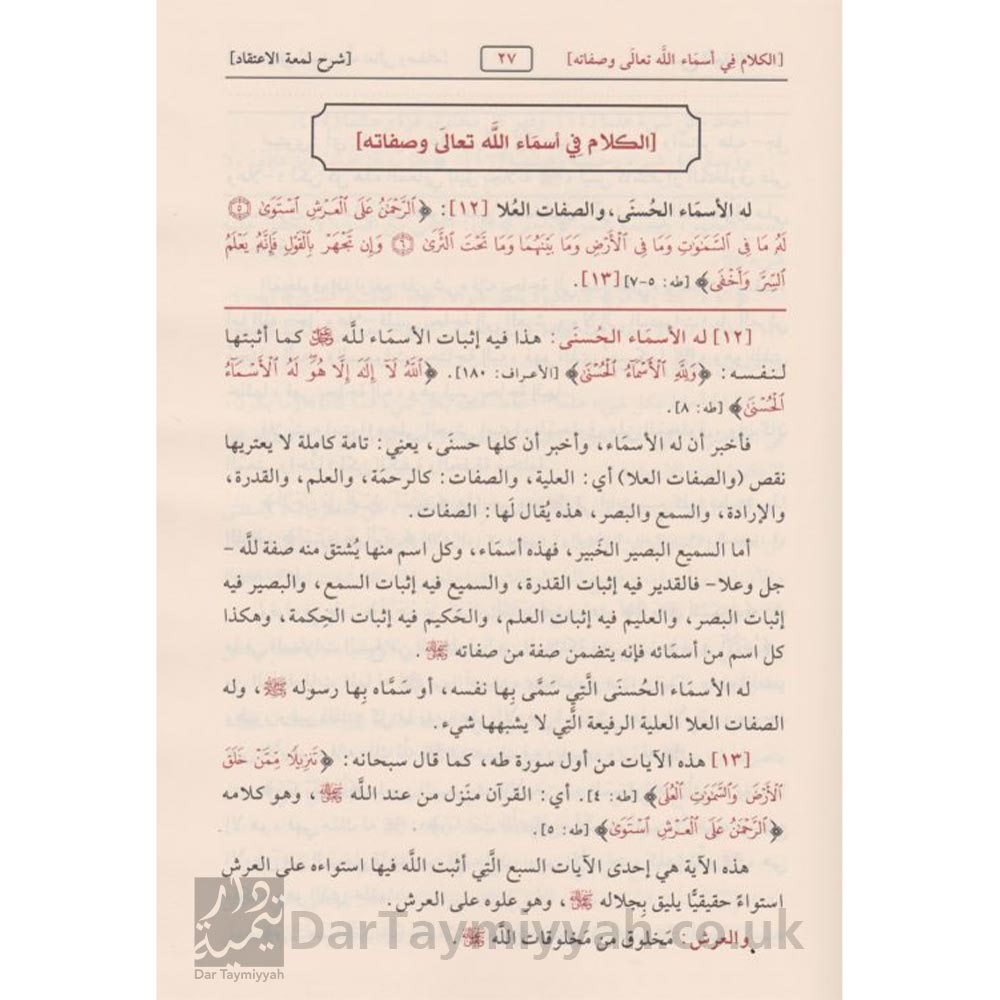 [الكلام فِي أسمَاء اللَّه تعالَى وصفاته] ٢٧ [شرح لمعة الاعتقاد]
[الكلام فِي أسمَاء اللَّه تعالَى وصفاته]
له الأسمَاء الحُسنَى، والصفات العُلا [١٢]: ﴿الرَّحْمَنُ عَلَى الْعَرْشِ اسْتَوَى ۝٥
لَهُ مَا فِي السَّمَوَاتِ وَمَا فِي الْأَرْضِ وَمَا بَيْنَهُمَا وَمَا تَحْتَ الثَّرَى ۝٦ وَإِن تَجْهَرْ بِالْقَوْلِ فَإِنَّهُ يَعْلَمُ
السِّرَّ وَأَخْفَى﴾ [طه: ٥-٧] [١٣].
[١٢] له الأسمَاء الحُسنَى: هذا فيه إثبات الأسمَاء للَّه ﷻ كما أثبتها
لنفسه: ﴿وَلِلَّهِ الْأَسْمَاءُ الْحُسْنَى﴾ [الأعراف: ١٨٠]. ﴿اللَّهُ لَا إِلَهَ إِلَّا هُوَ لَهُ الْأَسْمَاءُ
الْحُسْنَى﴾ [طه: ٨].
فأخبر أن له الأسمَاء، وأخبر أن كلها حسنَى، يعنِي: تامة كاملة لا يعتريها
نقص (والصفات العلا) أي: العلية، والصفات: كالرحمَة، والعلم، والقدرة،
والإرادة، والسمع والبصر، هذه يُقال لَها: الصفات.
أما السميع البصير الخَبير، فهذه أسمَاء، وكل اسم منها يُشتق منه صفة للَّه -
جل وعلا- فالقدير فيه إثبات القدرة، والسميع فيه إثبات السمع، والبصير فيه
إثبات البصر، والعليم فيه إثبات العلم، والحَكيم فيه إثبات الحِكمة، وهكذا
كل اسم من أسمَائه فإنه يتضمن صفة من صفاته ﷻ.
له الأسمَاء الحُسنَى الَّتِي سَمَّى بِها نفسه، أو سَمَّاه بِها رسوله ﷺ، وله
الصفات العلا العلية الرفيعة الَّتِي لا يشبهها شيء.
[١٣] هذه الآيات من أول سورة طه، كما قال سبحانه: ﴿تَنزِيلًا مِّمَّنْ خَلَقَ
الْأَرْضَ وَالسَّمَوَاتِ الْعُلَى﴾ [طه: ٤]. أي: القرآن منَزل من عند اللَّه ﷻ، وهو كلامه
﴿الرَّحْمَنُ عَلَى الْعَرْشِ اسْتَوَى﴾ [طه: ٥].
هذه الآية هي إحدى الآيات السبع الَّتِي أثبت اللَّه فيها استواءه على العرش
استواءً حقيقيًّا يليق بِجلاله ﷻ، وهو علوه على العرش.
والعرش: مَخلوق من مَخلوقات اللَّه ﷻ.
دار تيمية
Dar Taymiyyah
DarTaymiyyah.co.uk